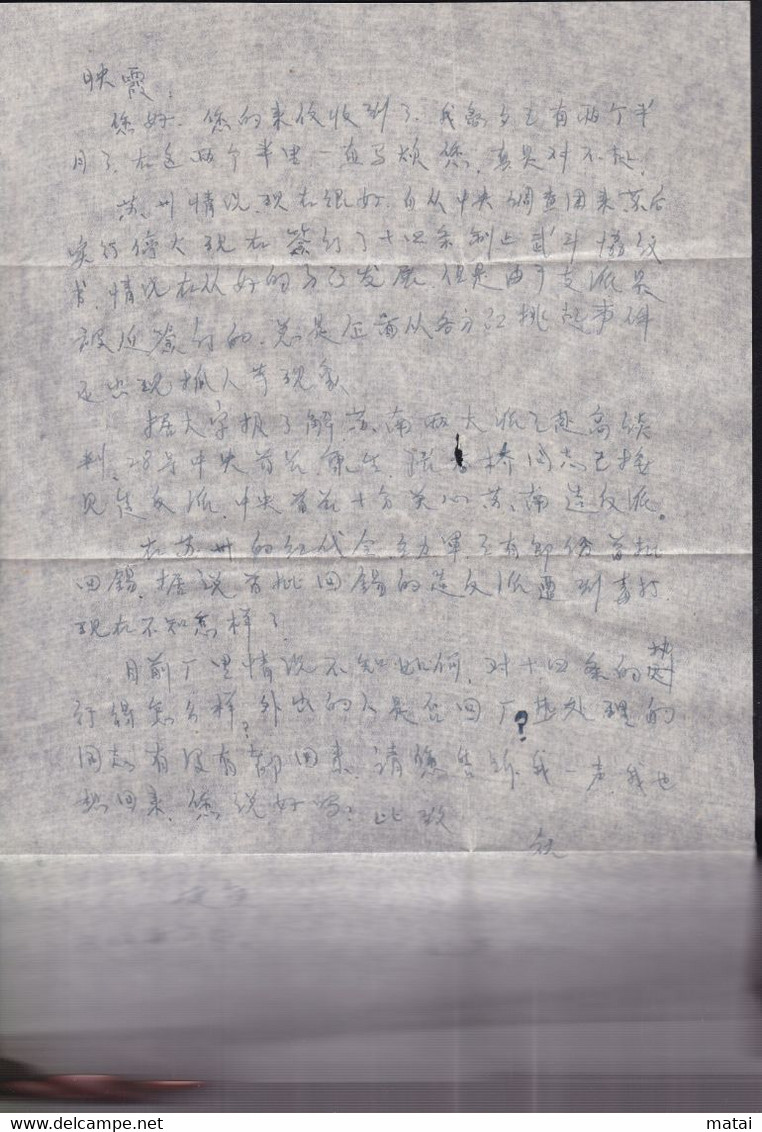 映霞：
您好。您的来信收到了。我离乡已有两个半
月了，在这两个半里一直马烦您，真是对不起。
苏州情况现在很好，自从中央调查团来苏后
实行停火现在签订了十四条制止武斗协议
书，情况在从好的方面发展，但是由于支派是
被迫签订的，总是在面从各方面挑起事件
还出现抓人等现象
据大字报了解苏南两大派已赴京谈
判，28号中央首长，康生，张春桥同志已接
见造反派，中央首长十分关心苏南造反派。
在苏州的红代会 军 有部份首批
回锡，据说首批回锡的造反派遭到毒打
现在不知怎样了
目前厂里情况不知如何，对十四条的执
行得怎么样？外出的人是否回厂 处理的
同志有没有都回来，请您告诉我一声，我也
想回来，您说好吗？此致
matai